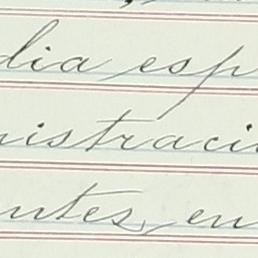 dia esp
nistraci
ntes, en